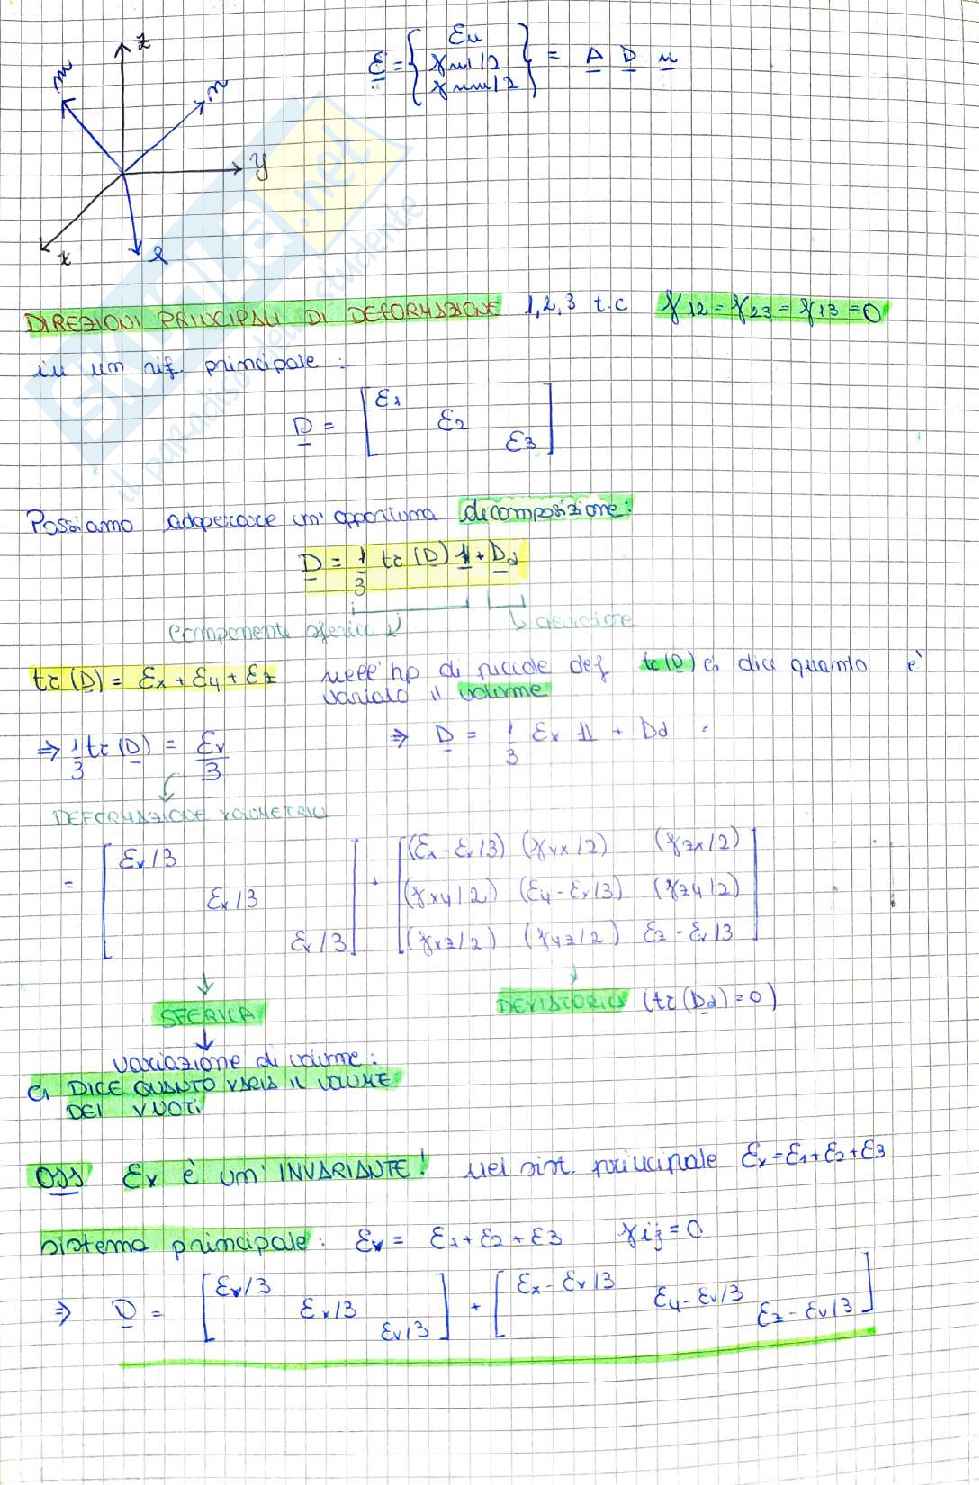 z
m
n
y
x
l
ε = { εn γnl/2 γnm/2 } = A D n
DIREZIONI PRINCIPALI DI DEFORMAZIONE 1,2,3 t.c γ12 = γ23 = γ13 = 0
in un rif. principale :
D = [ ε1 ε2 ε3 ]
Possiamo adoperare un'opportuna decomposizione:
D = 1/3 tr (D) 1 + Dd
componente sferica
tr (D) = εx + εy + εz nell'hp di piccole def tr(D) ci dice quanto è
variato il volume
⇒ 1/3 tr (D) = εv/3 ⇒ D = 1/3 εv 1 + Dd =
DEFORMAZIONE VOLUMETRICA
= [ εv/3 εv/3 εv/3 ] + [ (εx - εv/3) (γyx/2) (γzx/2)
(γxy/2) (εy - εv/3) (γzy/2)
(γxz/2) (γyz/2) εz - εv/3 ]
SFERICA DEVIATORICA (tr(Dd) = 0)
variazione di volume :
CI DICE QUANTO VARIA IL VOLUME
DEI VUOTI
OSS εv è un' INVARIANTE! nel sist. principale εv = ε1 + ε2 + ε3
Sistema principale : εv = ε1 + ε2 + ε3 γij = 0
⇒ D = [ εv/3 εv/3 εv/3 ] + [ εx - εv/3 εy - εv/3 εz - εv/3 ]